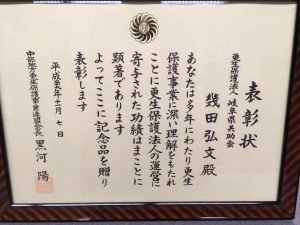 表彰状
更生保護法人 岐阜県共助会
幾田弘文殿
あなたは多年にわたり更生
保護事業に深い理解をもたれ
ことに更生保護法人の運営に
寄与された功績はまことに
顕著であります
よってここに記念品を贈り
表彰します
平成十九年十一月七日
中部地方更生保護事業連盟会長 黒河 陽